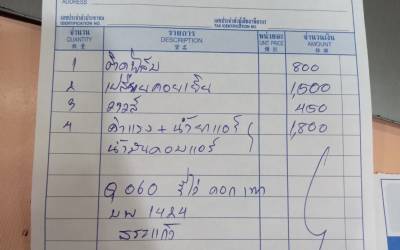 ADDRESS
เลขประจำตัวประชาชน
IDENTIFICATION NO.
เลขประจำตัวผู้เสียภาษีอากร
TAX IDENTIFICATION NO.
จำนวน รายการ หน่วยละ จำนวนเงิน
QUANTITY DESCRIPTION UNIT PRICE AMOUNT
1 800
2 เปลี่ยนคอยเย็น 1,500
3 วาวล์ 450
4 ค่าแรง + น้ำยาแอร์ 1,800
น้ำมันคอมแอร์
060
1424
สระแก้ว